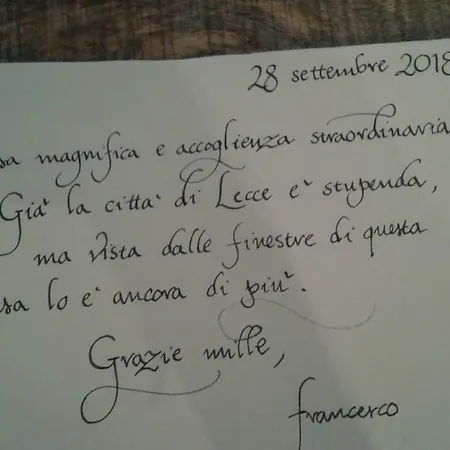 28 settembre 2018
sa magnifica e accoglienza straordinaria
Già la città di Lecce è stupenda,
ma vista dalle finestre di questa
sa lo è ancora di più.
Grazie mille,
francesco